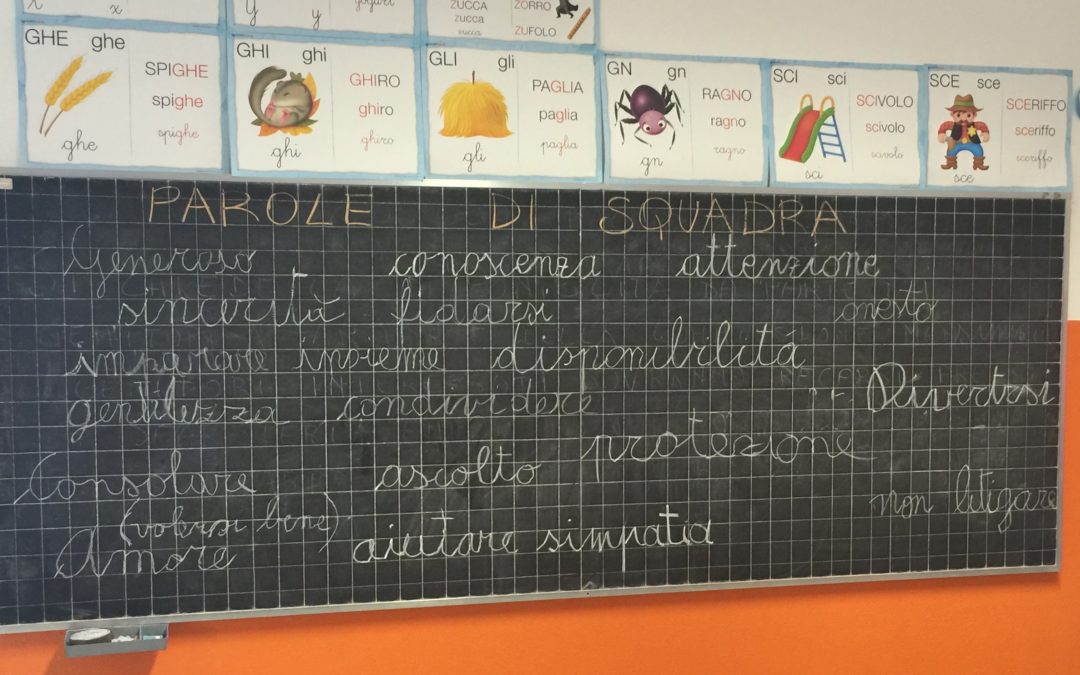 x
x
y
y
yogurt
ZUCCA
zucca
zucca
ZORRO
ZUFOLO
GHE ghe
SPIGHE
spighe
spighe
ghe
GHI ghi
GHIRO
ghiro
ghiro
ghi
GLI gli
PAGLIA
paglia
paglia
gli
GN gn
RAGNO
ragno
ragno
gn
SCI sci
SCIVOLO
scivolo
scivolo
sci
SCE sce
SCERIFFO
sceriffo
sceriffo
sce
PAROLE DI SQUADRA
Generoso conoscenza attenzione
sincerità fidarsi onesto
imparare insieme disponibilità
gentilezza condividere Divertrsi
protezione
Consolare ascolto
non litigare
(volersi bene)
Amore aiutare simpatia